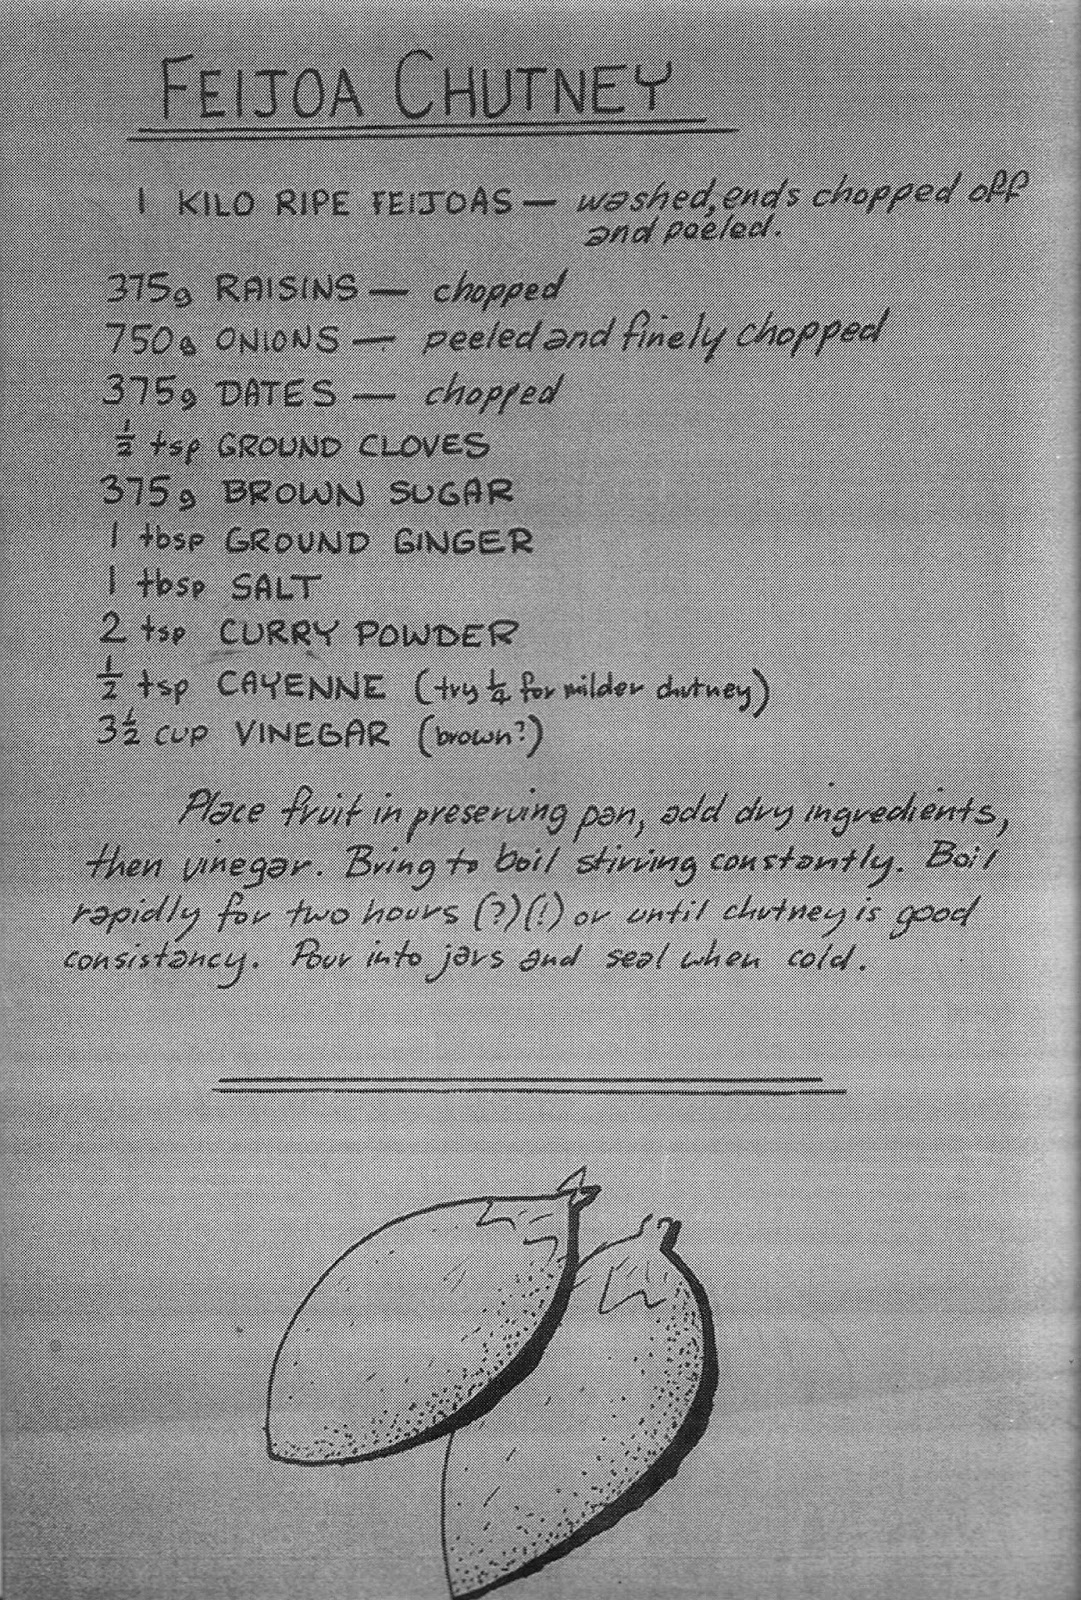 FEIJOA CHUTNEY
1 KILO RIPE FEIJOAS — washed, ends chopped off
and peeled.
375g RAISINS — chopped
750g ONIONS — peeled and finely chopped
375g DATES — chopped
½ tsp GROUND CLOVES
375g BROWN SUGAR
1 tbsp GROUND GINGER
1 tbsp SALT
2 tsp CURRY POWDER
½ tsp CAYENNE (try ¼ for milder chutney)
3½ cup VINEGAR (brown?)
Place fruit in preserving pan, add dry ingredients,
then vinegar. Bring to boil stirring constantly. Boil
rapidly for two hours (?)(!) or until chutney is good
consistancy. Pour into jars and seal when cold.